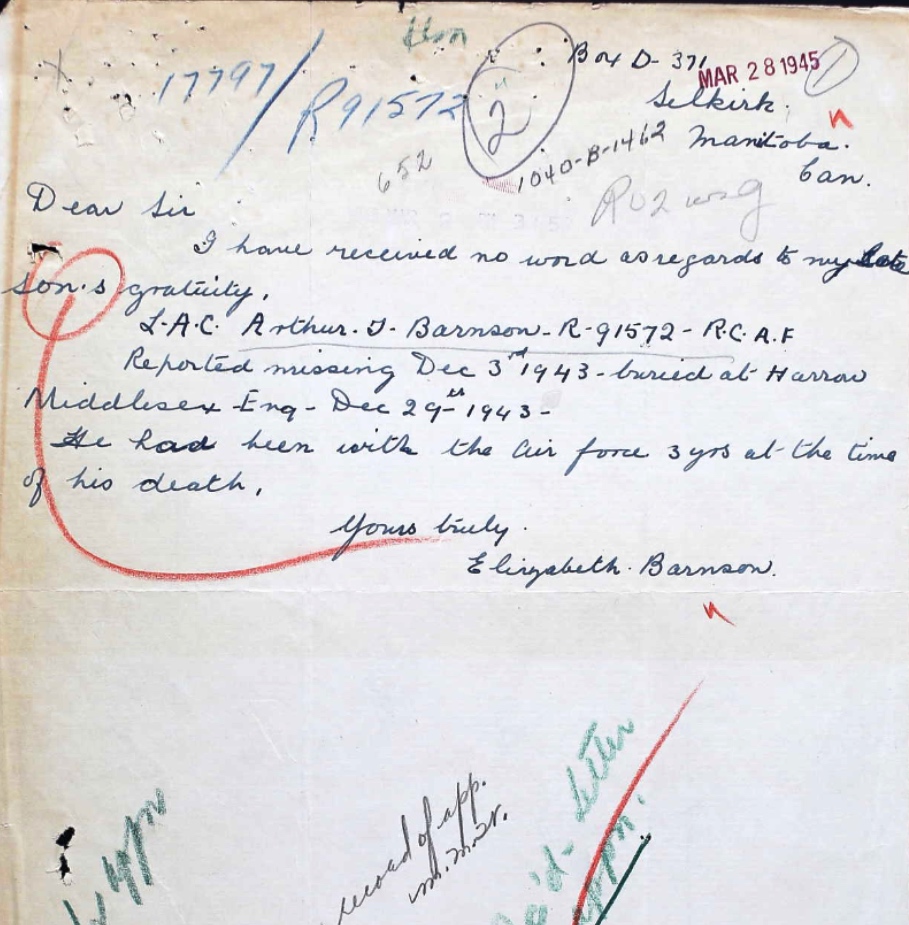 17797/R91572
2
Box D-371
MAR 28 1945
1
Selkirk,
Manitoba.
Can.
652
1040-B-1462
Dear Sir
I have received no word as regards to my late
son's gratuity.
L.A.C. Arthur. J. Barnson - R-91572 - R.C.A.F
Reported missing Dec 3rd 1943 - buried at Harrow
Middlesex Eng - Dec 29th 1943 -
He had been with the Air force 3 yrs at the time
of his death,
Yours truly.
Elizabeth. Barnson.
record of app.
letter